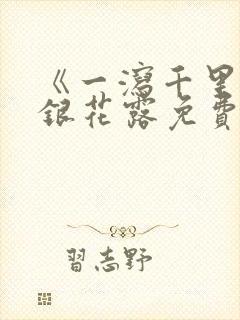 《一瀉千里
銀花露免費
習志野